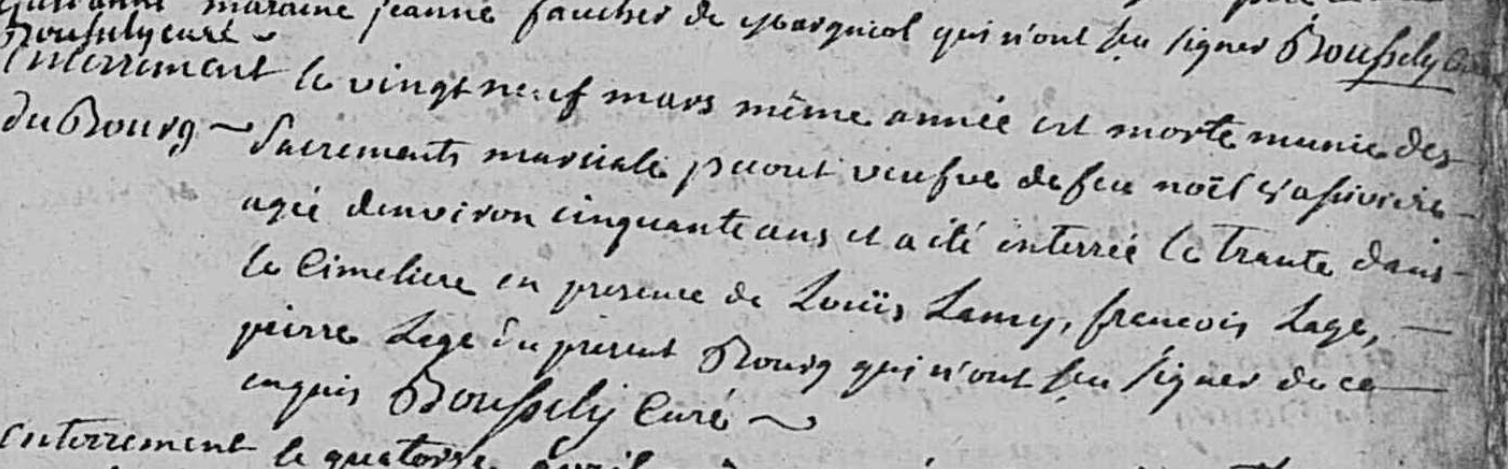 maraine jeanne faucher de qui n'ont seu signer Boussely
Boussely curé
Enterrement le vingt neuf mars même année est morte munie des
du Bourg ~ Sacrements marciale veufve de feu noël
agée denviron cinquante ans et a été enterrée le trante dans
le Cimetiere en presence de Louïs Lamy, francois Lage,
pierre Lage du present Bourg qui n'ont seu signer de ce
enquis Boussely Curé ~
enterrement le quatorze avril